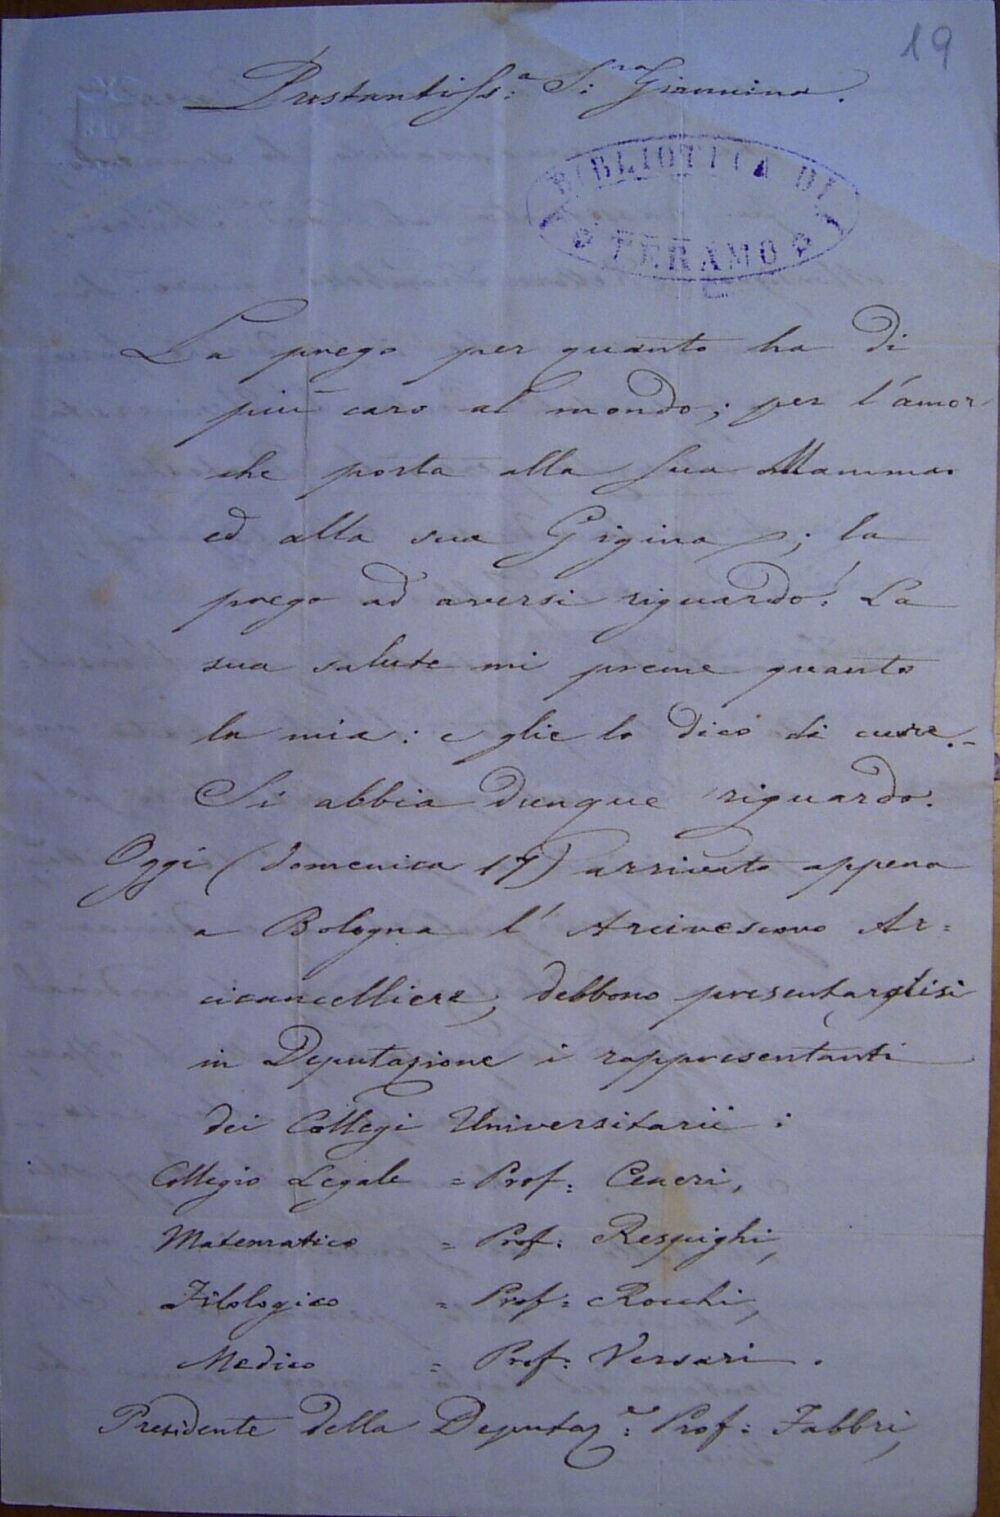 19
Prestantiss:a S:ra Giannina.
BIBLIOTECA DI
TERAMO
La prego per quanto ha di
più caro al mondo; per l'amor
che porta alla sua Mamma
ed alla sua Gigina; la
prego ad aversi riguardo! La
sua salute mi preme quanto
la mia: e glie lo dico di cuore.-
Si abbia dunque riguardo.
Oggi (domenica 17) arrivato appena
a Bologna l'Arcivescovo Ar=
cicancelliere, debbono presentarglisi
in Deputazione i rappresentanti
dei Collegi Universitarii:
Collegio Legale = Prof: Ceneri,
Matematico = Prof: Respighi,
Filologico = Prof: Rocchi,
Medico = Prof: Versari.
Presidente della Deputaz:e Prof: Fabbri,